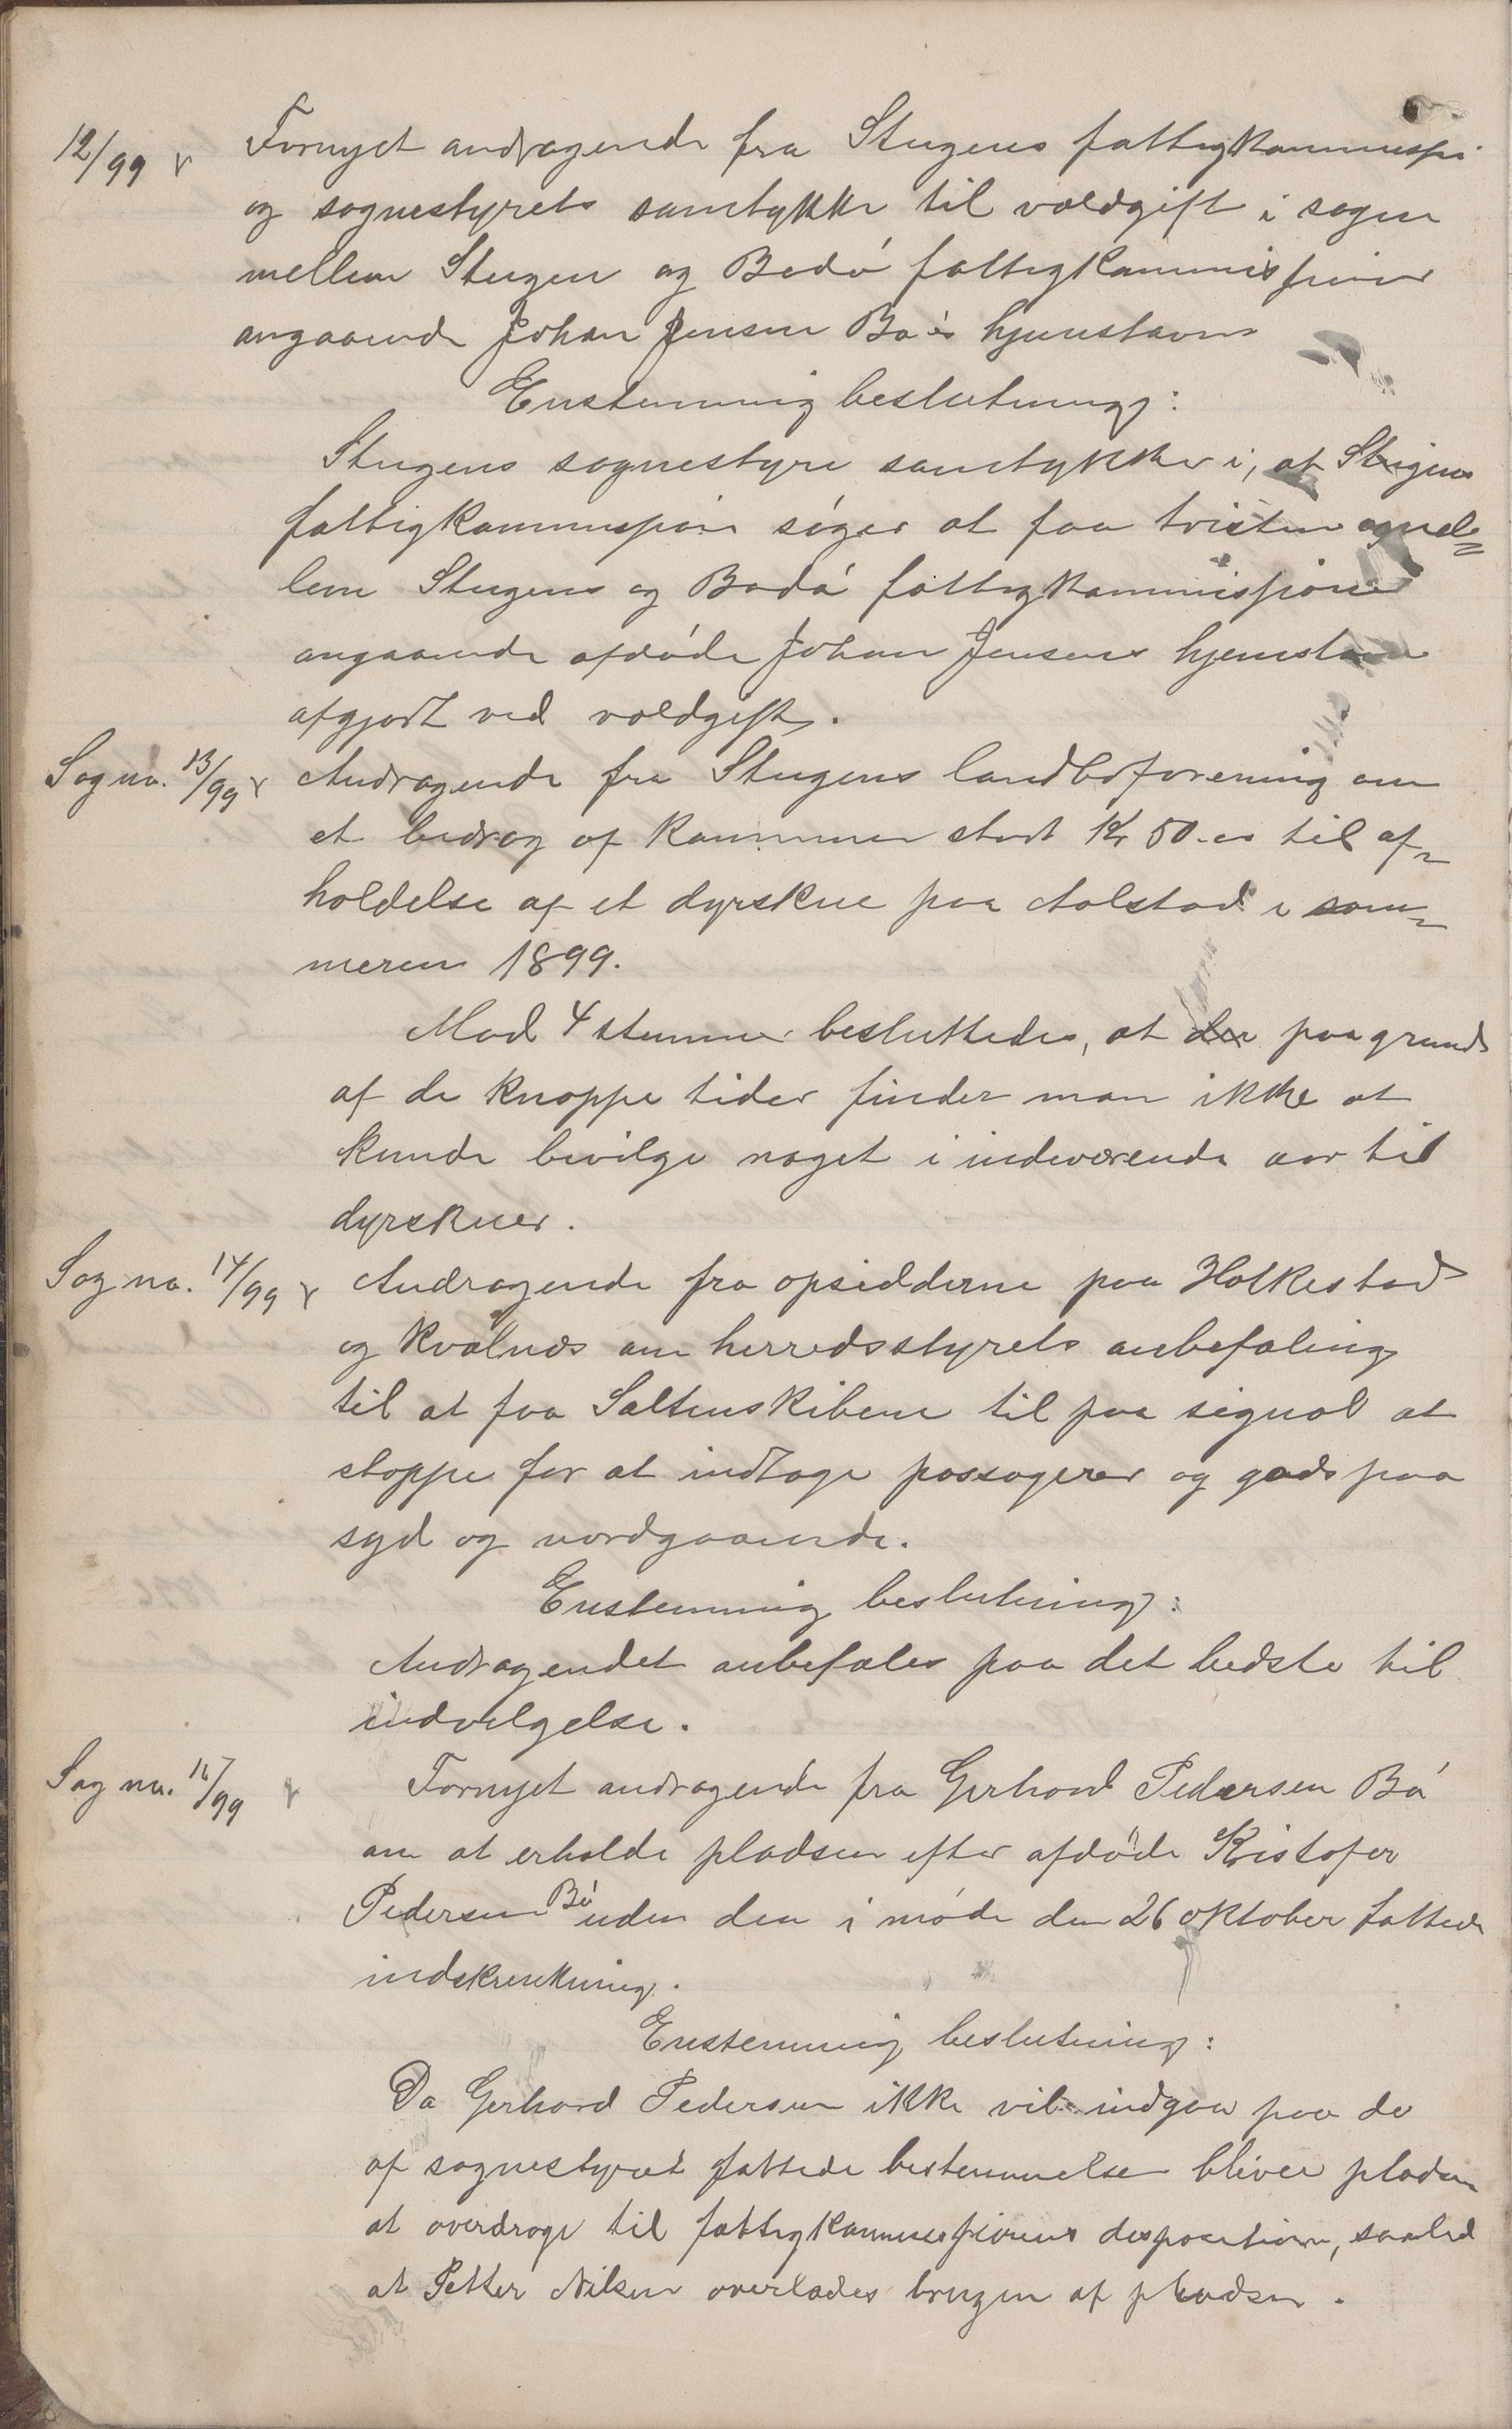 12/99 Fornyet andragende fra Stegens fattigkommissi
og sognestyrets samtykke til voldgift i sagen
mellem Stegen og Bodó fattigkommissioner
angaaende Johan Jensen Bo's hjemstavn
Enstemmig beslutning:
Stegens sognestyre samtykker i, at Stegens
fattigkommission søger at faa tvisten mel=
lem Stegens og Bodó fattigkommissioner
angaaende afdøde Johan Jensens hjemstavn
afgjort ved voldgift.
Sag no. 13/99 Andragende fra Stegens landboforening om
et bidrag af kommunen stort Kr 50.00 til af=
holdelse af et dyrskue paa Aalstad i som=
meren 1899.
Mod 4 stemmer besluttedes, at der paa grund
af de knappe tider finder man ikke at
kunde bevilge noget i indeværende aar til
dyrskuer.
Sag no. 14/99 Andragende fra opsidderne paa Holkestad
og Kvalnæs om herredsstyrets anbefaling
til at faa Saltenskibene til paa signal at
stoppe for at indtage passagerer og gods paa
syd og nordgaaende.
Enstemmig beslutning:
Andragendet anbefales paa det bedste til
indvilgelse.
Sag no. /99 Fornyet andragende fra Gerhard Pedersen Bø
om at erholde pladsen efter afdøde Kristofer
Pedersen Bø uden den i møde den 26 oktober fattede
indskrenkning.
Enstemmig beslutning:
Da Gerhard Pedersen ikke vil indgaa paa de
af sognestyret fattede bestemmelse bliver pladsen
at overdrage til fattigkommissionens disposition, saaled
at Petter Nilsen overlades brugen af pladsen.